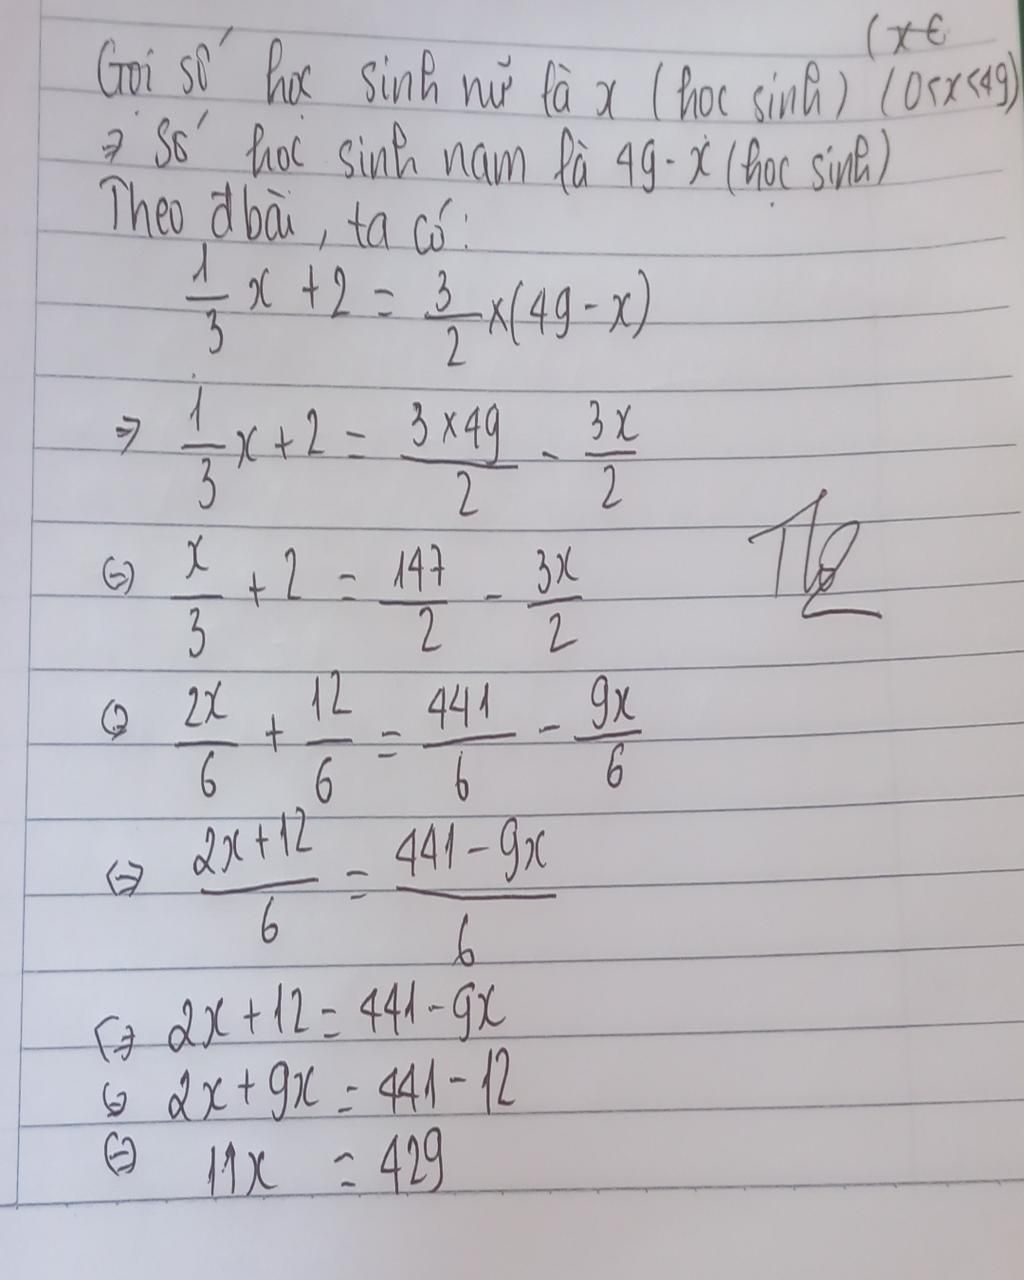 (x€
Gọi số học sinh nữ là x (học sinh) (0<x<49)
⇒ Số học sinh nam là 49-x (học sinh)
Theo đbài, ta có:
1/3 x + 2 = 3/2 x(49-x)
⇒ 1/3 x + 2 = 3x49/2 - 3x/2
⇔ x/3 + 2 = 147/2 - 3x/2
⇔ 2x/6 + 12/6 = 441/6 - 9x/6
⇔ 2x+12/6 = 441-9x/6
⇔ 2x+12 = 441-9x
⇔ 2x+9x = 441-12
⇔ 11x = 429